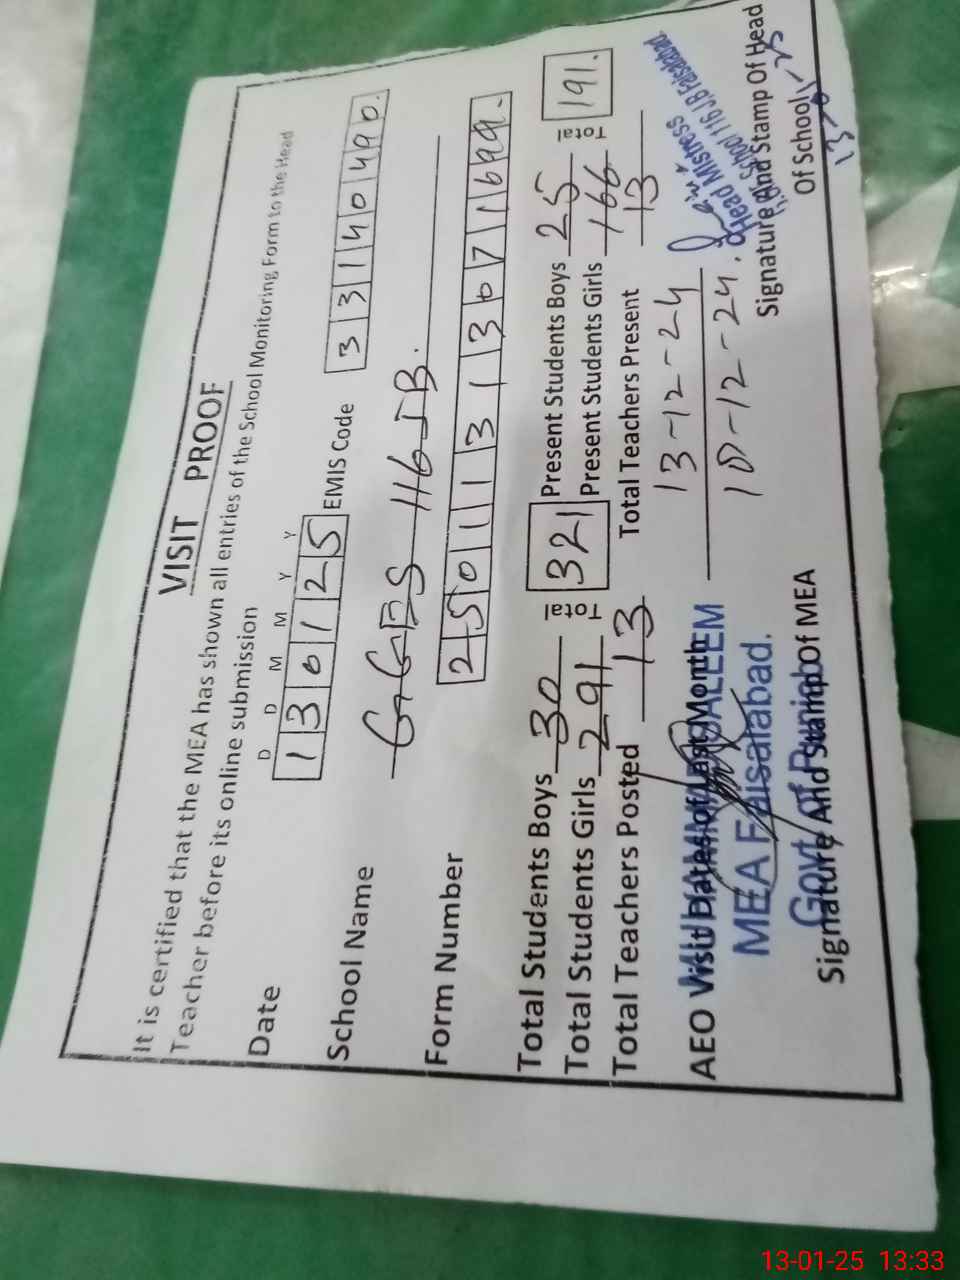 VISIT PROOF
It is certified that the MEA has shown all entries of the School Monitoring Form to the Head
Teacher before its online submission
D D M M Y Y
Date 130125 EMIS Code 33140490.
School Name GGES 116 JB.
Form Number 25011313071699.
Total Students Boys 30 Total 321 Present Students Boys 25 Total 191.
Total Students Girls 291 Present Students Girls 166
Total Teachers Posted 13 Total Teachers Present 13
AEO Visit Dates of Last Month 13-12-24
18-12-24.
MEA Faisalabad.
Govt. of Punjab
Signature And Stamp Of MEA
Head Mistress
School 116 J.B Faisalabad.
Signature And Stamp Of Head
Of School
13-01-25 13:33